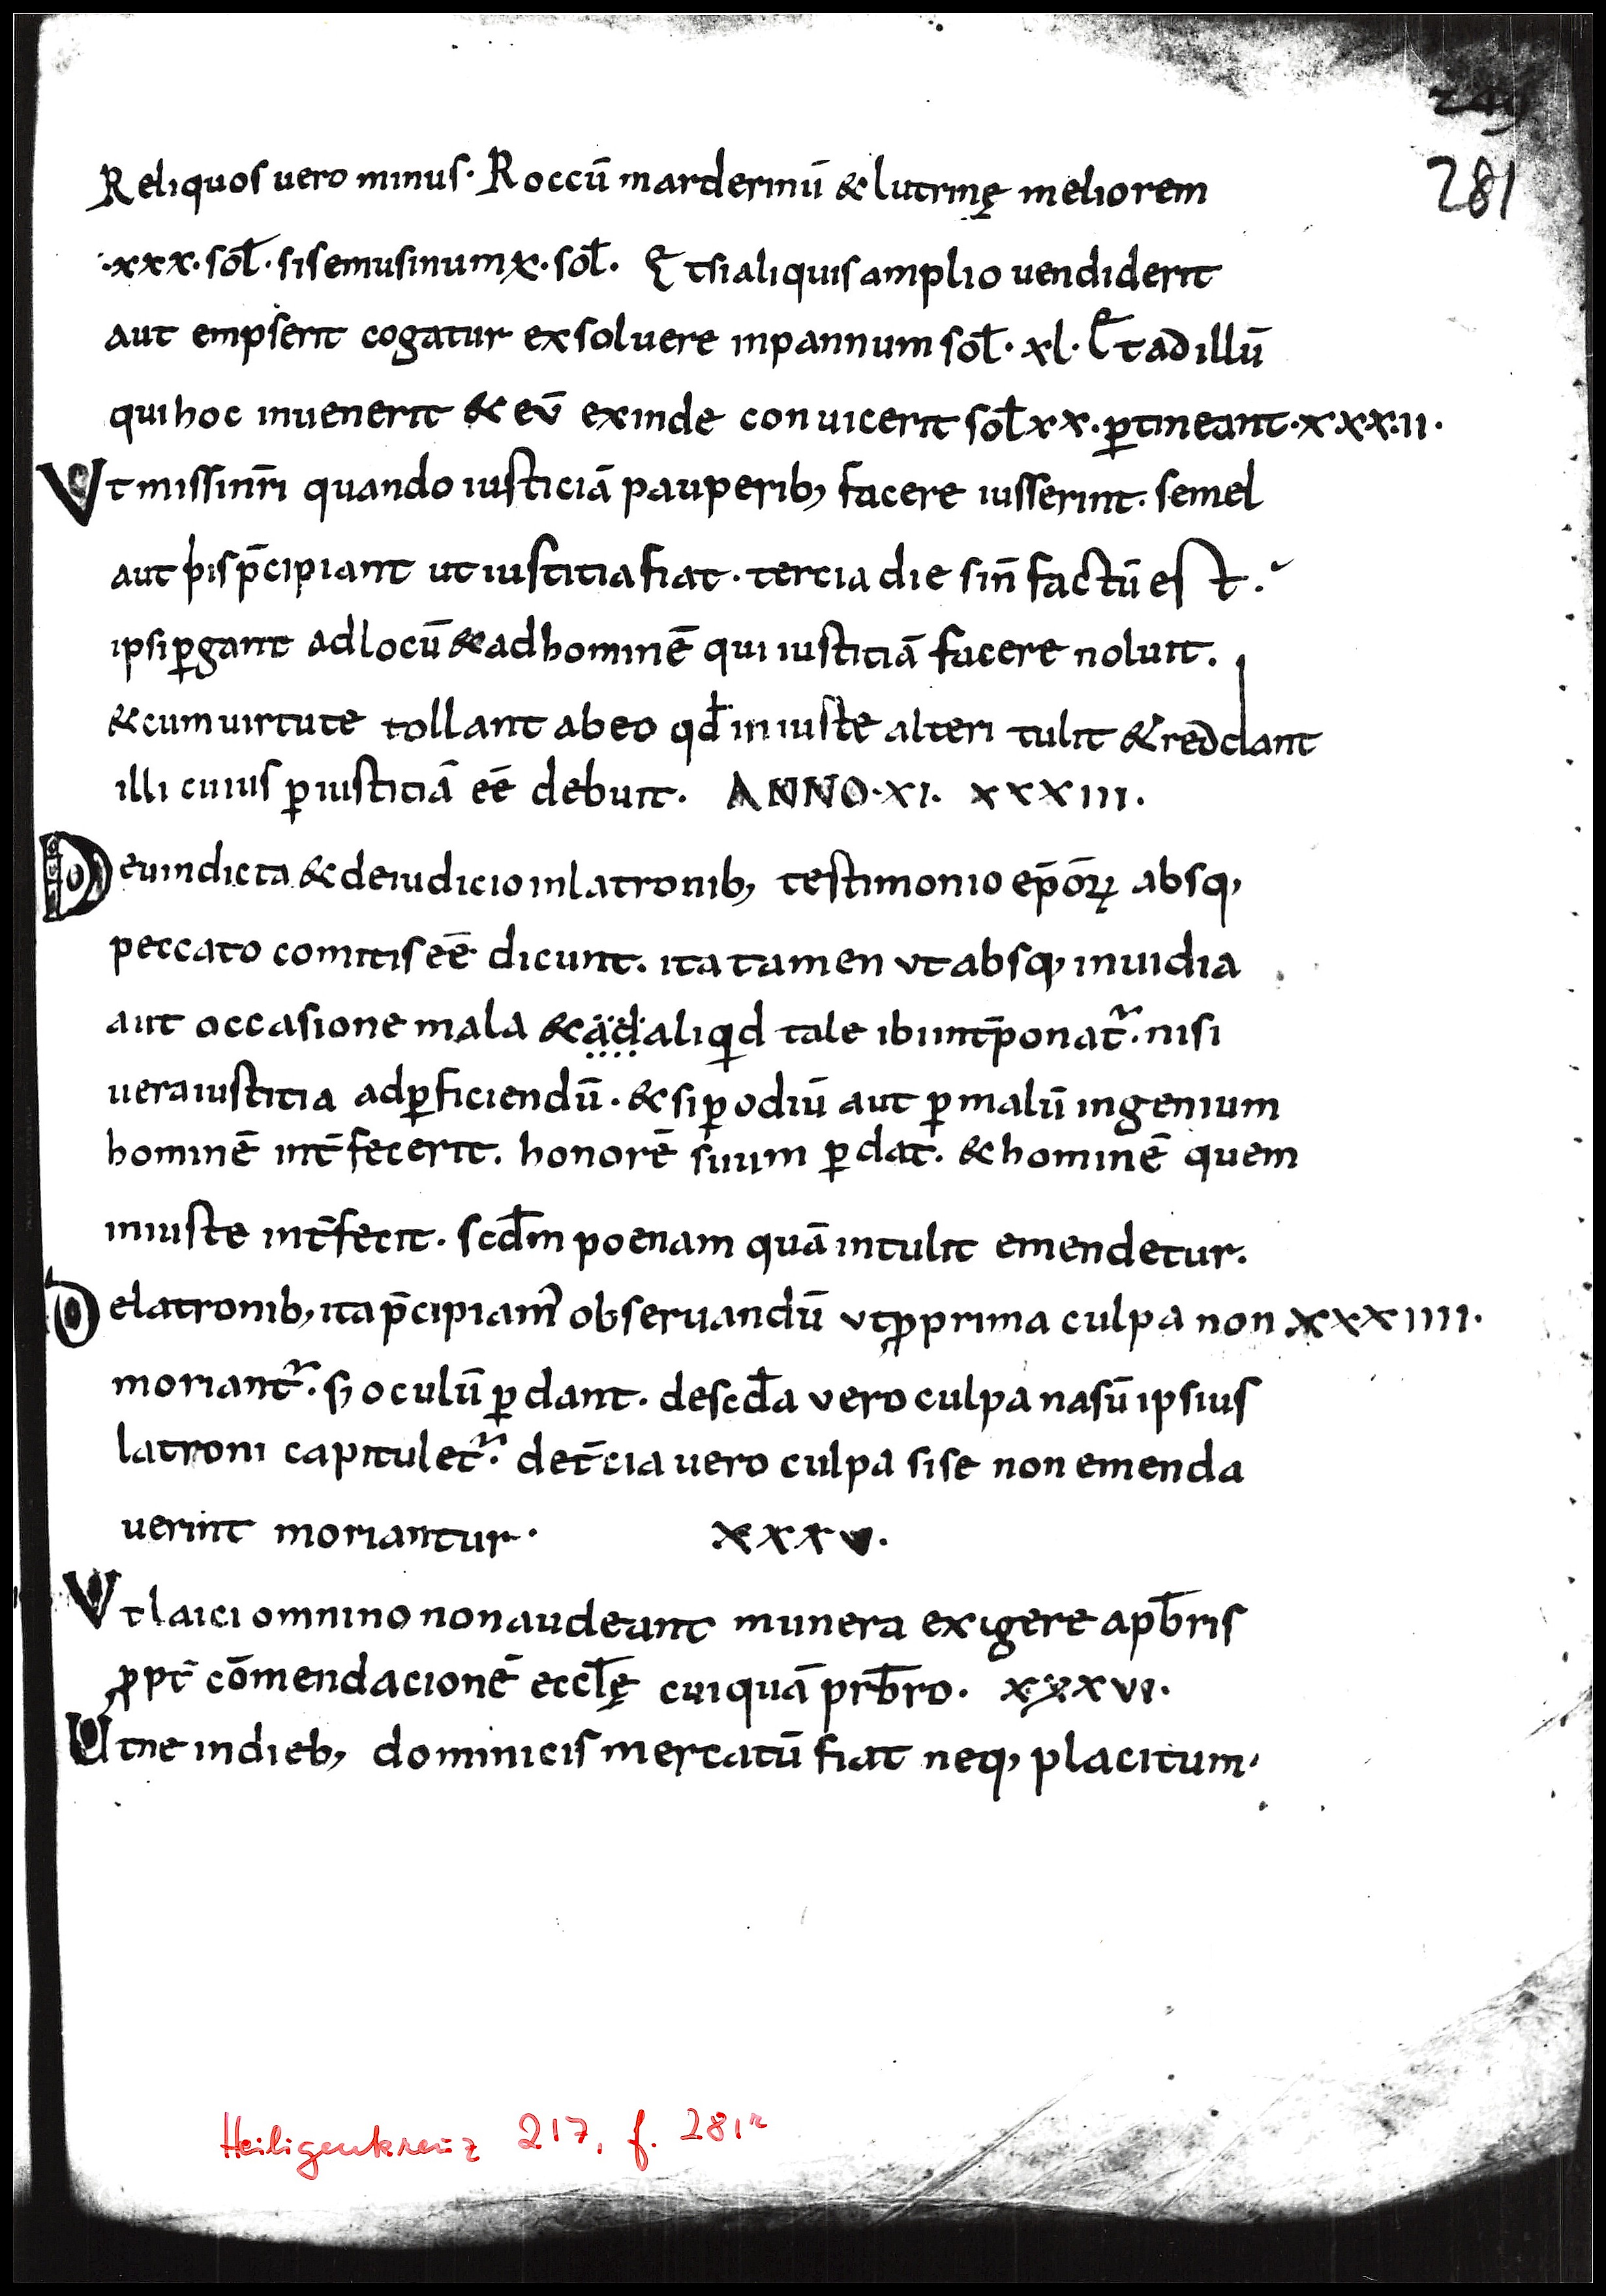 249
281
Reliquos uero minus· Roccū marderinū & lutrinę meliorem
·xxx· sol̄· si semusinum x· sol̄· Et si aliquis amplio uendiderit
aut empserit cogatur exsoluere in pannum sol̄· xl· Et ad illū
qui hoc inuenerit & eū exinde conuicerit sol̄ xx· ꝑtineant· xxxii·
Vt missi nr̄i quando iusticiā pauperib; facere iusserint· semel
aut bis p̄cipiant ut iustitia fiat· tercia die si n̄ factū est·
ipsi ꝑgant ad locū & ad hominē qui iusticiā facere noluit·
& cum uirtute tollant ab eo qd̄ iniuste alteri tulit & reddant
illi cuius ꝑ iusticiā eē debuit· ANNO·XI· xxxiii·
De uindicta & de iudicio in latronib; testimonio ep̄ōrꝝ absq;
peccato comitis eē dicunt· ita tamen vt absq; inuidia
aut occasione mala & ad aliqid tale ibi int̄ponat᷑· nisi
uera iustitia ad ꝑficiendū· & si ꝑ odiū aut ꝑ malū ingenium
hominē int̄fecerit· honorē suum ꝑdat· & hominē quem
iniuste int̄fecit· scd̄m poenam quā intulit emendetur·
De latronib; ita p̄cipiam᾽ obseruandū vt ꝓ prima culpa non xxxiiii·
moriant᷑· s; oculū ꝑdant· de scd̄a vero culpa nasū ipsius
latroni capitulet᷑· de t̄cia uero culpa si se non emenda
uerint moriantur· xxxv·
Vt laici omnino non audeant munera exigere a pb̄ris
ꝓpt̄ cōmendacionē eccl̄ę cuiquā prb̄ro· xxxvi·
Ut ne in dieb; dominicis mercatū fiat neq; placitum·
Heiligenkreuz 217, f. 281r